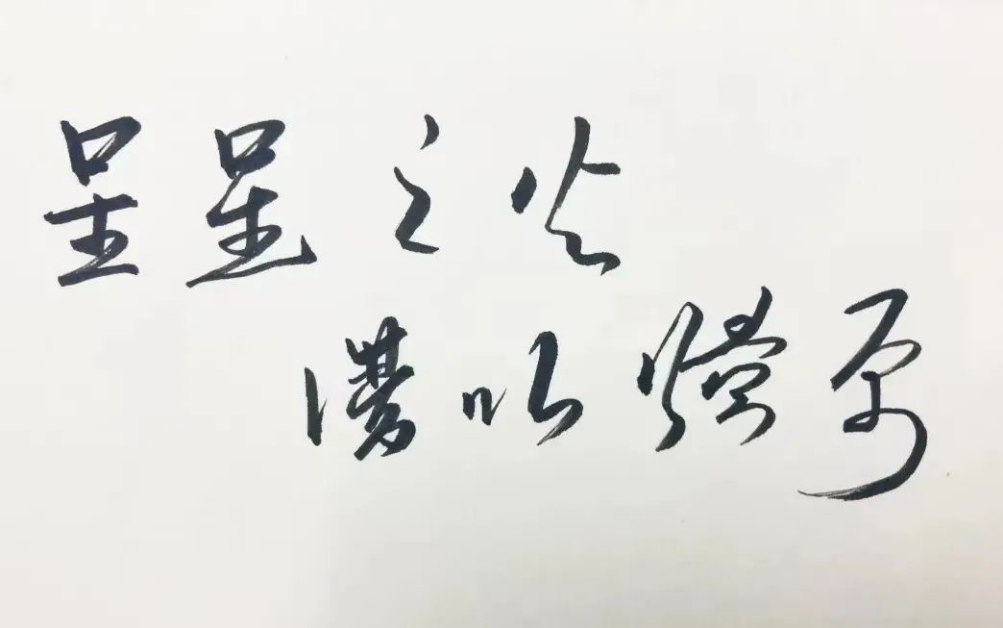 星星之火
以燎原